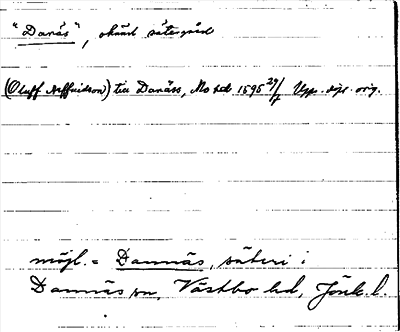 "Danäs", okänd sätesgård
(Oluff Arffuidson) till Danäss, Mo hd 1595 29/7 Upps. dipl. orig.
möjl. = Dannäs, säteri i
Dannäs sn, Västbo hd, Jönk. l.